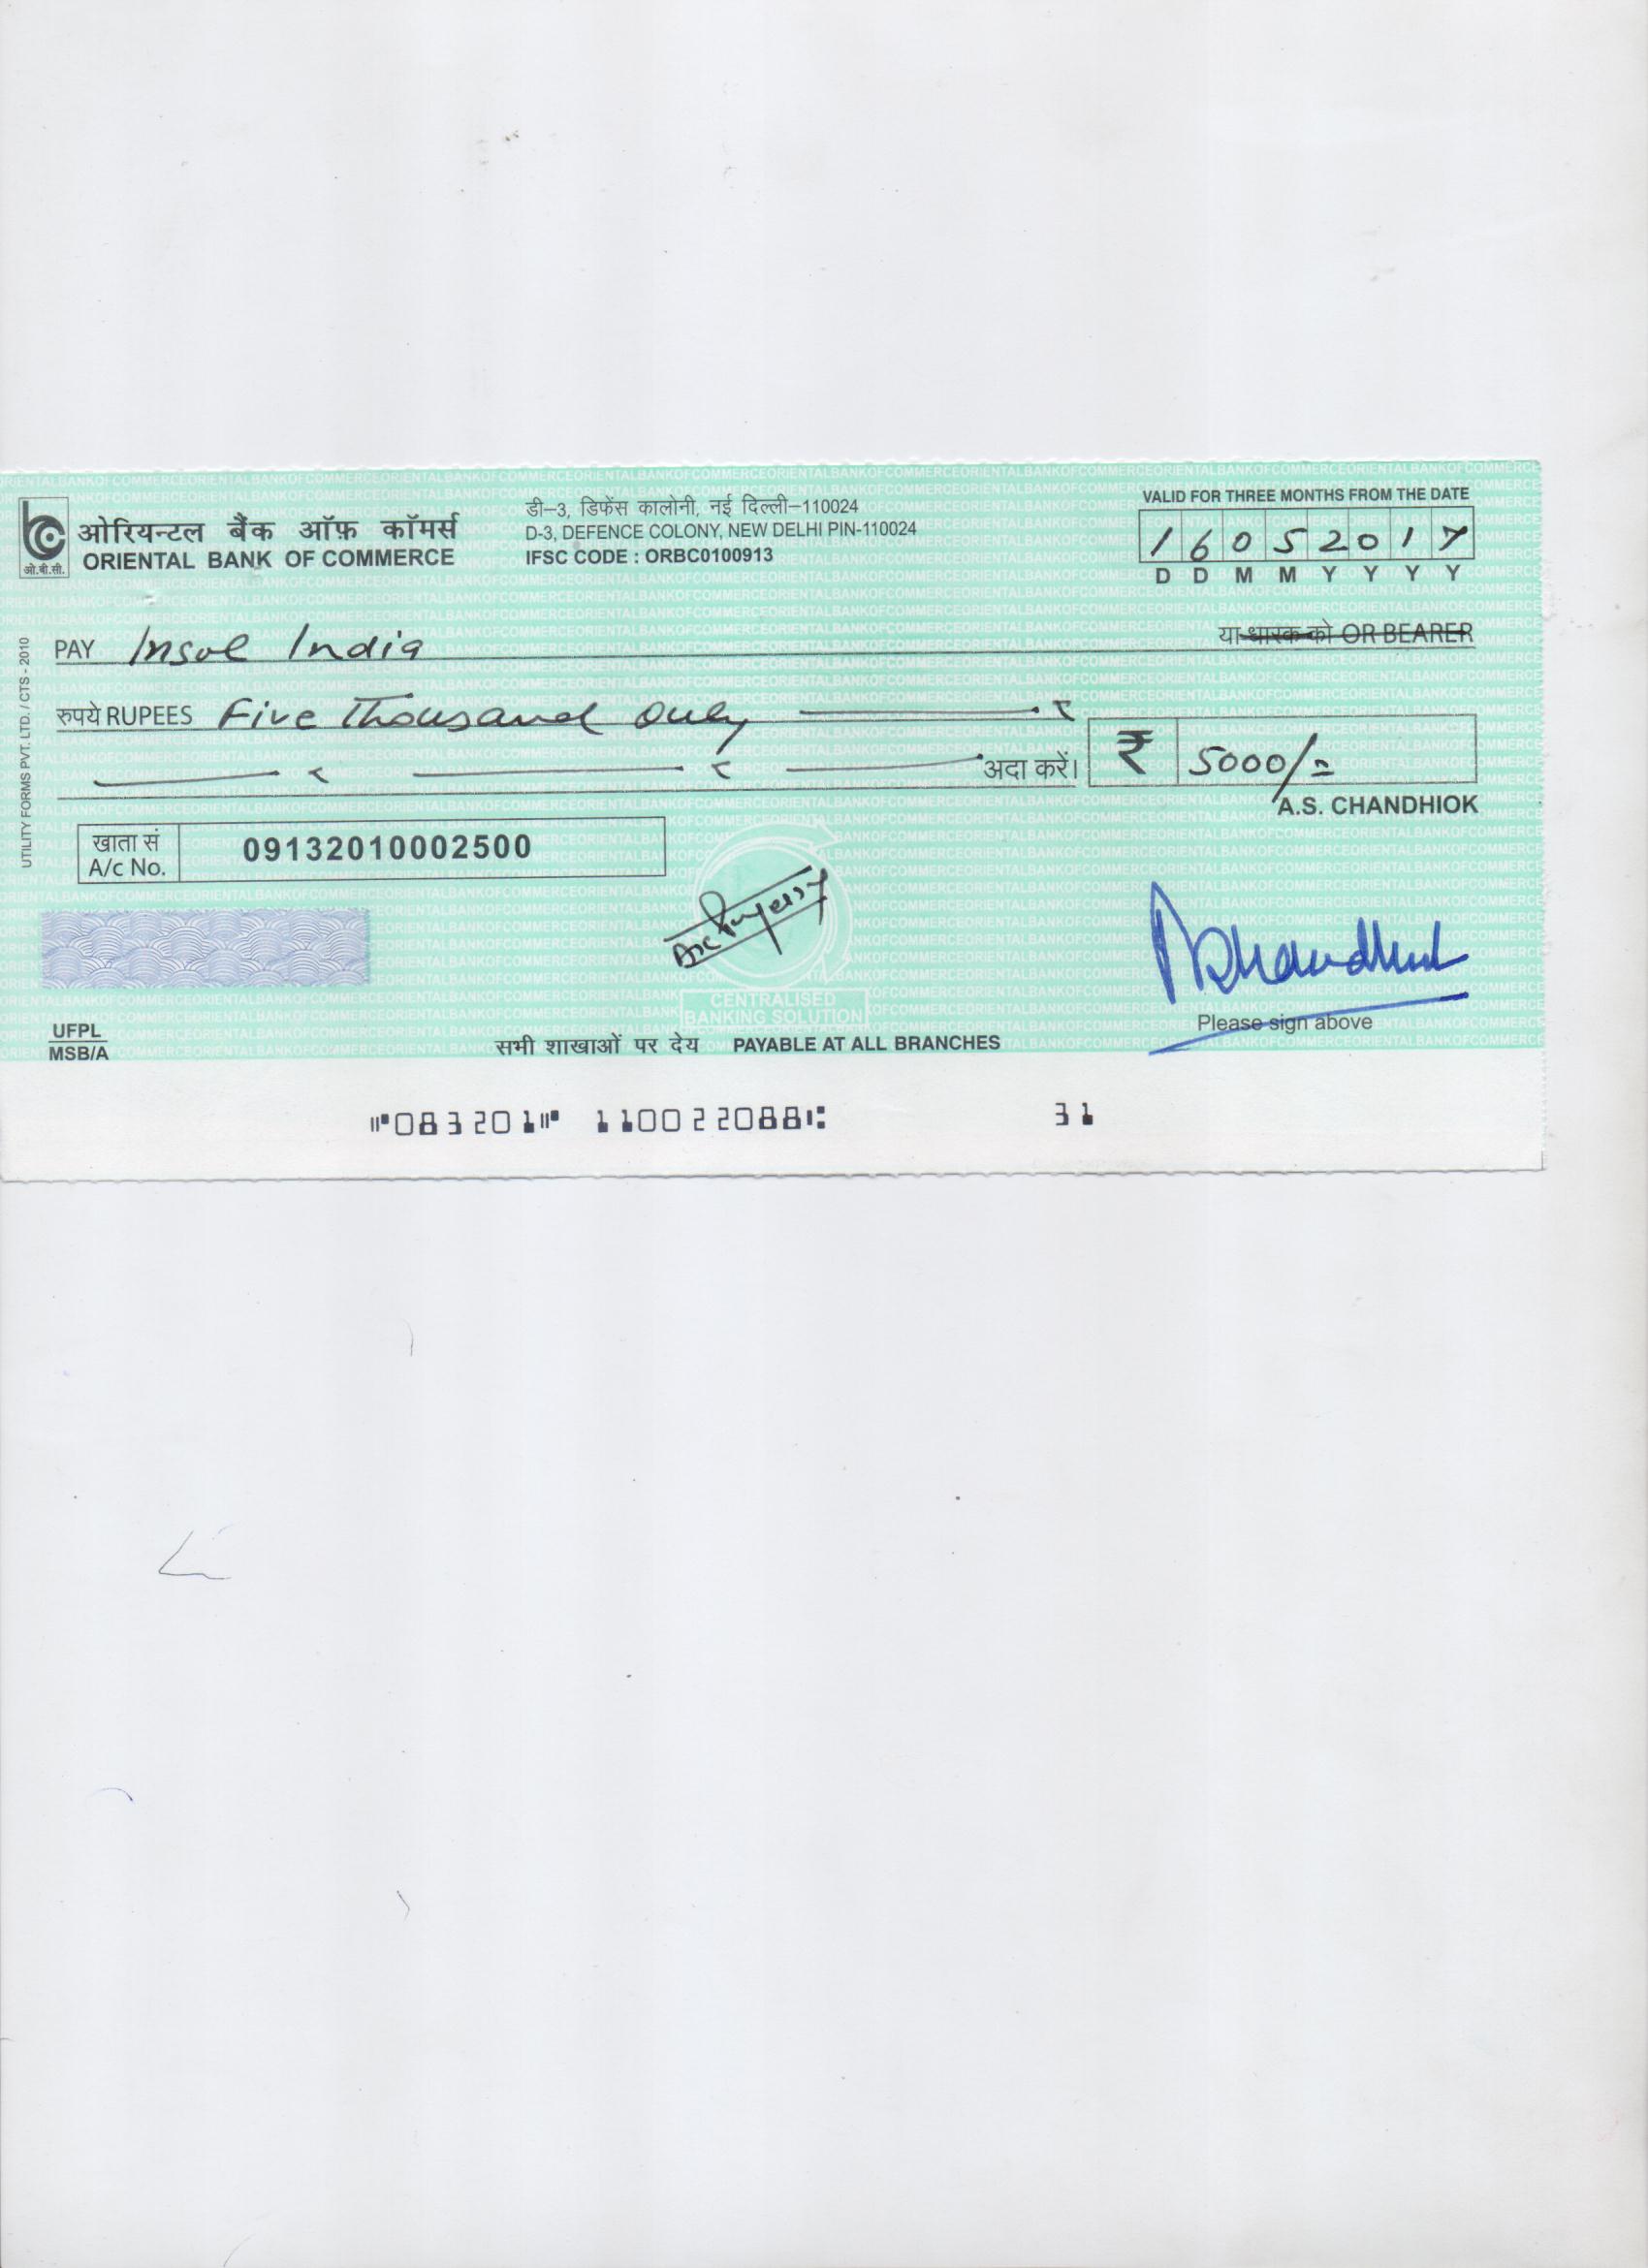 ओरियन्टल बैंक ऑफ़ कॉमर्स
ORIENTAL BANK OF COMMERCE
ओ.बी.सी.
डी–3, डिफेंस कालोनी, नई दिल्ली–110024
D-3, DEFENCE COLONY, NEW DELHI PIN-110024
IFSC CODE : ORBC0100913
VALID FOR THREE MONTHS FROM THE DATE
1 6 0 5 2 0 1 7
D D M M Y Y Y Y
PAY Insol India या धारक को OR BEARER
रुपये RUPEES Five Thousand Only
अदा करें। ₹ 5000/=
A.S. CHANDHIOK
खाता सं
A/c No. 09132010002500
A/c Payee
CENTRALISED
BANKING SOLUTION
Please sign above
UFPL
MSB/A
सभी शाखाओं पर देय PAYABLE AT ALL BRANCHES
UTILITY FORMS PVT. LTD. / CTS - 2010
⑈083201⑈ 110022088⑆ 31